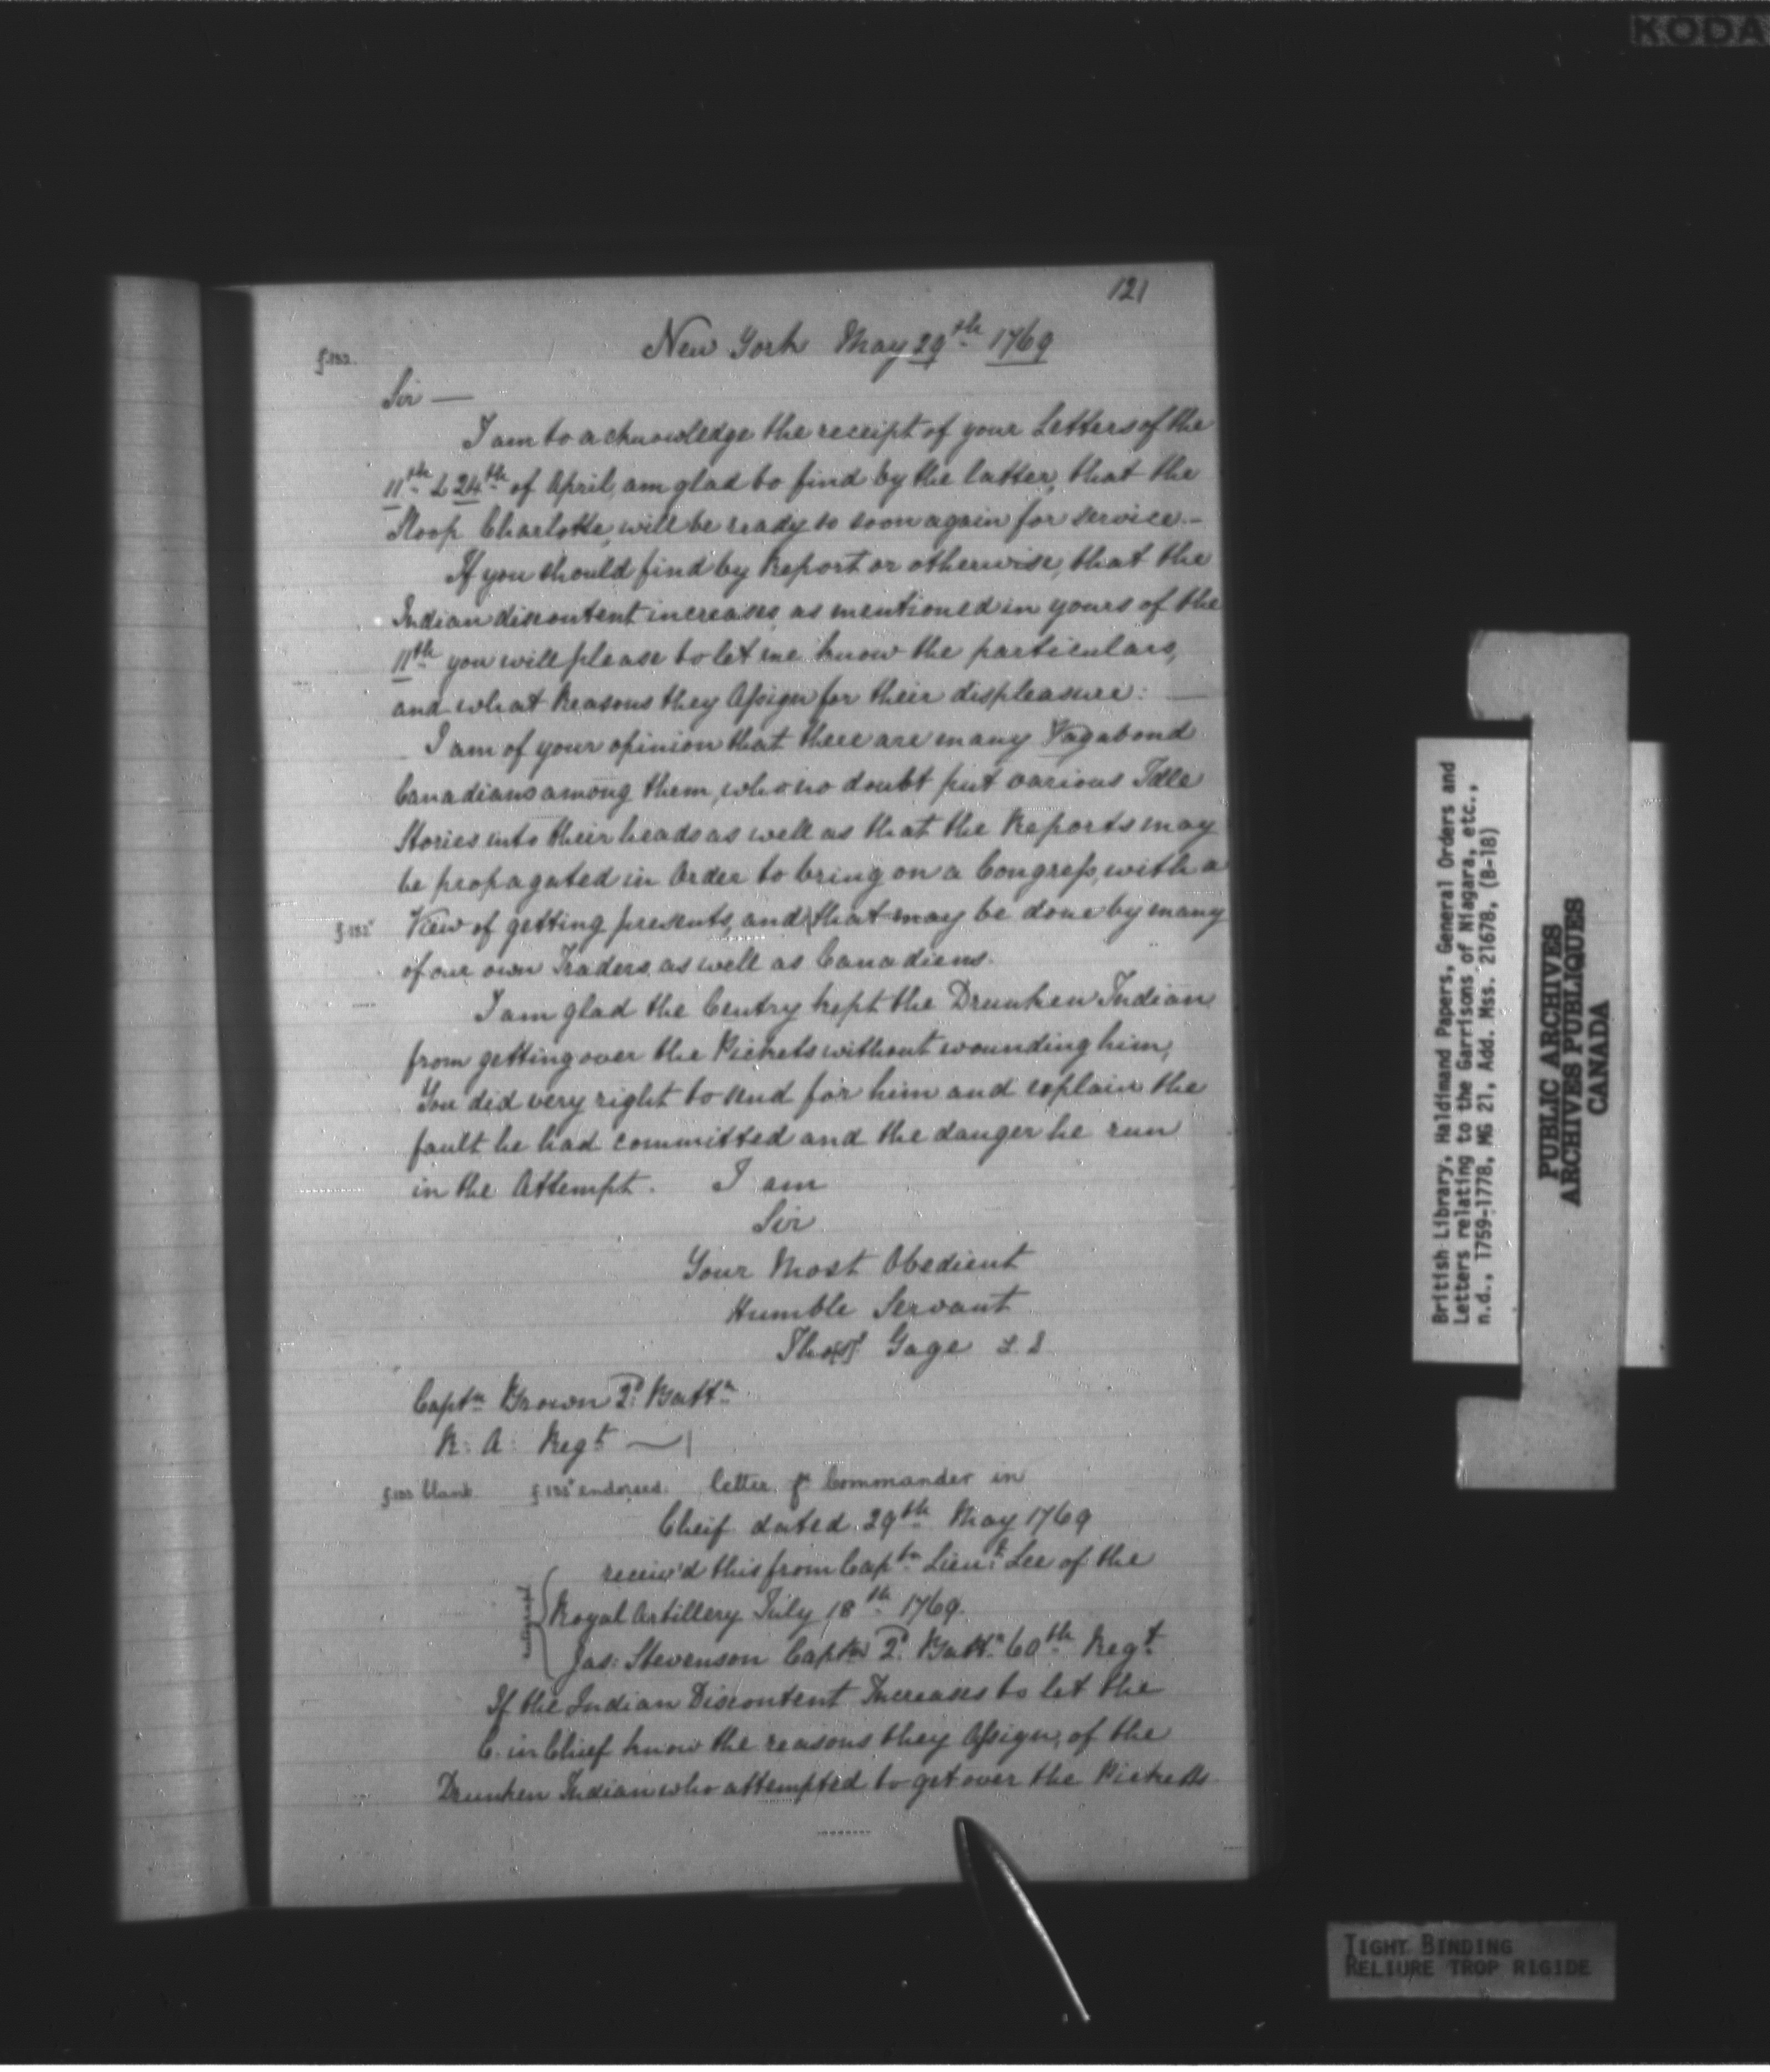 KODA
121
New York May 29th 1769
Sir —
I am to acknowledge the receipt of your Letters of the
11th & 24th of April, am glad to find by the latter, that the
Sloop Charlotte, will be ready so soon again for service.-
If you should find by Report or otherwise, that the
Indian discontent increases as mentioned in yours of the
11th you will please to let me know the particulars,
and what Reasons they Assign for their displeasure:
I am of your opinion that there are many Vagabond
Canadians among them, who no doubt put various Idle
Stories into their heads as well as that the Reports may
be propagated in Order to bring on a Congress, with a
View of getting presents, and that may be done by many
of our own Traders as well as Canadiens.
I am glad the Centry kept the Drunken Indian
from getting over the Pickets without wounding him,
You did very right to send for him and explain the
fault he had committed and the danger he run
in the Attempt. I am
Sir
Your Most Obedient
Humble Servant
Tho[s] Gage
Captn Brown 2d Battn
R: A: Regt
blank endorsed. letter fm Commander in
Cheif dated 29th May 1769
receiv'd this from Captn Lieut Lee of the
Royal Artillery July 18th 1769.
Jas: Stevenson Captn 2d Battn 60th Regt
If the Indian Discontent Increases to let the
C. in Chief know the reasons they Assign, of the
Drunken Indian who attempted to get over the Picketts
British Library, Haldimand Papers, General Orders and
Letters relating to the Garrisons of Niagara, etc.,
n.d., 1759-1778, MG 21, Add. Mss. 21678, (B-18)
PUBLIC ARCHIVES
ARCHIVES PUBLIQUES
CANADA
TIGHT BINDING
RELIURE TROP RIGIDE